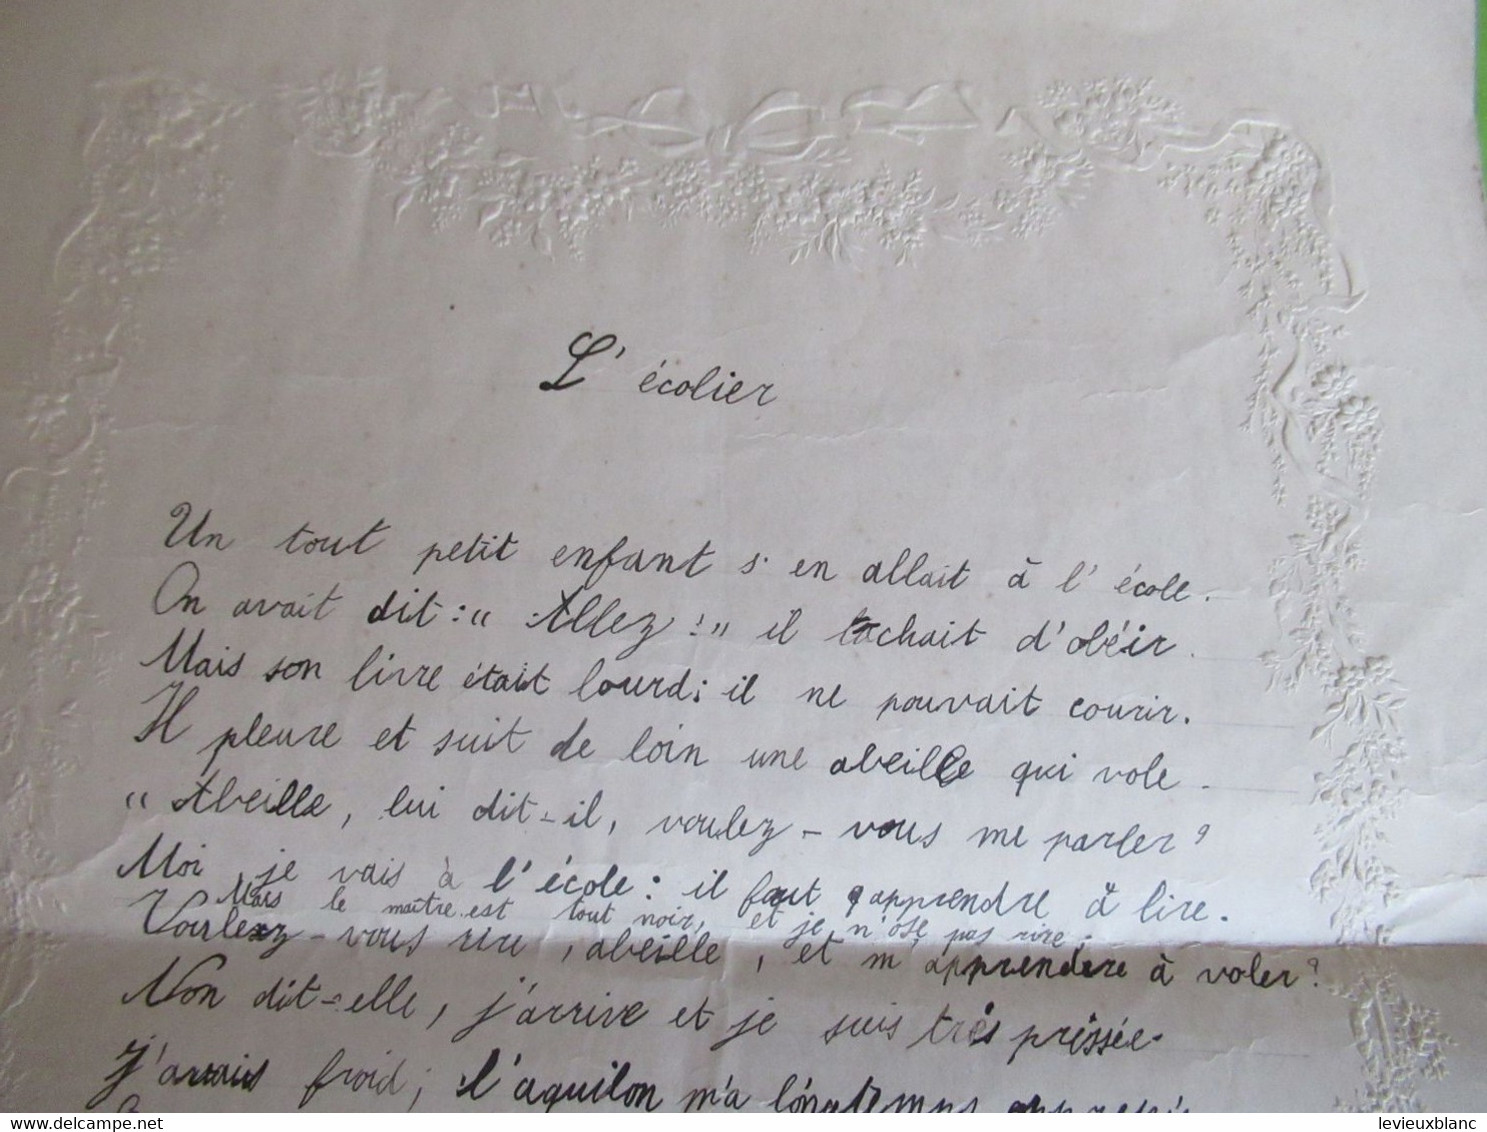 L'écolier
Un tout petit enfant s'en allait à l'école.
On avait dit : " Allez ! " il tâchait d'obéir.
Mais son livre était lourd ; il ne pouvait courir.
Il pleure et suit de loin une abeille qui vole.
" Abeille, lui dit-il, voulez-vous me parler ?
Moi je vais à l'école : il faut apprendre à lire.
Mais le maître est tout noir, et je n'ose pas rire :
Voulez-vous rire, abeille, et m'apprendre à voler ?
Non dit-elle, j'arrive et je suis très pressée.
J'avais froid ; l'aquilon m'a longtemps
www.delcampe.net
levieuxblanc